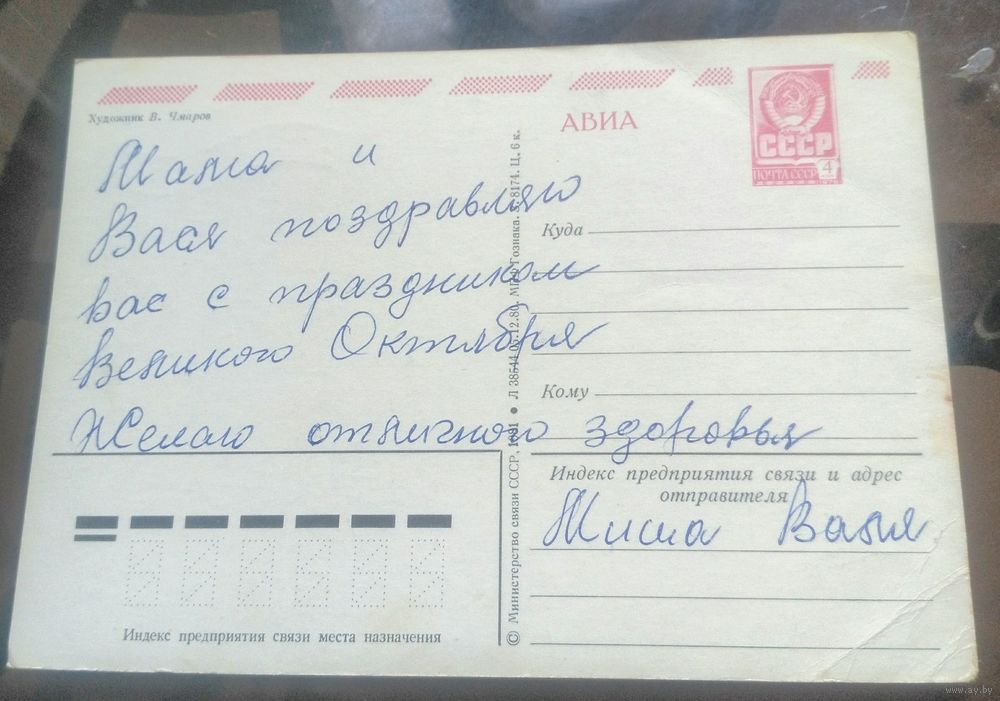 Художник В. Чмаров
АВИА
СССР
ПОЧТА СССР 4
Мама и
Вася поздравляю
вас с праздником
Великого Октября
Желаю отличного здоровья
Куда
Кому
Индекс предприятия связи и адрес
отправителя
Миша Валя
Индекс предприятия связи места назначения
© Министерство связи СССР, 1981 • Л 38544 05.12.80. МПФ Гознака. З. 8174. Ц. 6 к.
www.ay.by